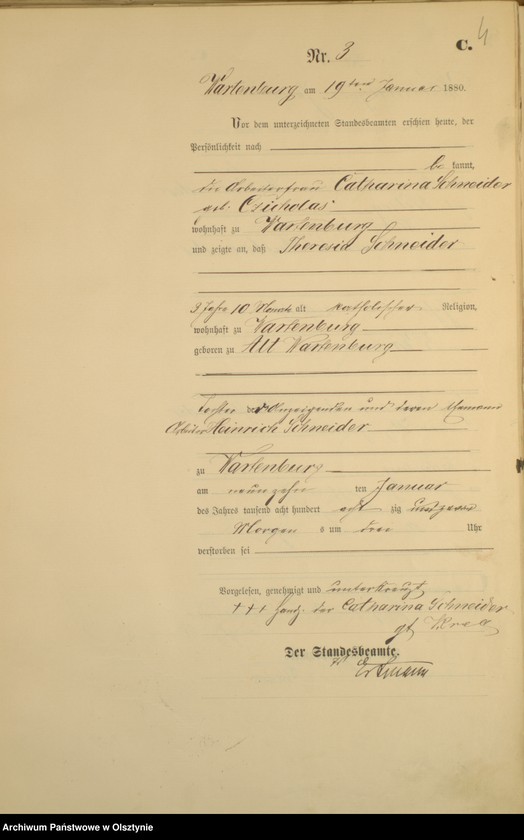 4
C.
Nr. 3
Wartenburg am 19ten Januar 1880.
Vor dem unterzeichneten Standesbeamten erschien heute, der
Persönlichkeit nach
be kannt,
die Arbeiterfrau Catharina Schneider
geb. Czicholas
wohnhaft zu Wartenburg
und zeigte an, daß Theresia Schneider
3 Jahre 10 Monate alt katholischer Religion,
wohnhaft zu Wartenburg
geboren zu Alt Wartenburg
Tochter der Anzeigenden und deren Ehemann
Arbeiter Heinrich Schneider
zu Wartenburg
am neunzehn ten Januar
des Jahres tausend acht hundert acht zig und zwar
Morgen s um drei Uhr
verstorben sei
Vorgelesen, genehmigt und unterkreuzt
+++ Handz. der Catharina Schneider
Der Standesbeamte.
Archiwum Państwowe w Olsztynie